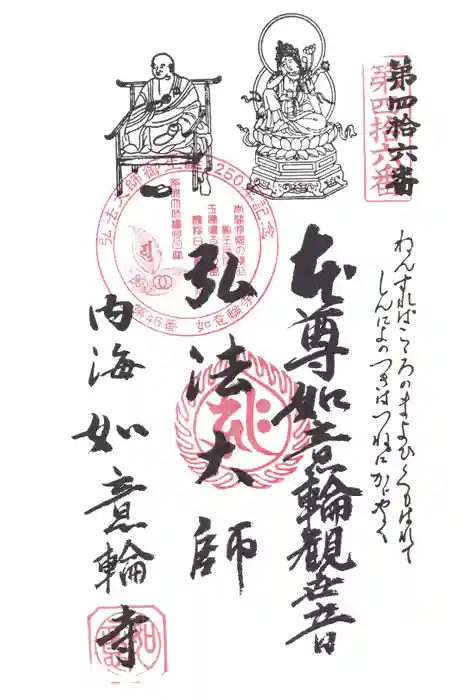 第四拾六番
第四拾六番
ねんずればこころのまよひくもはれて
しんにょのつきはつねにかがやく
本尊如意輪観世音
弘法大師
弘法大師御生誕1250年記念
第46番 如意輪寺
内海如意輪寺